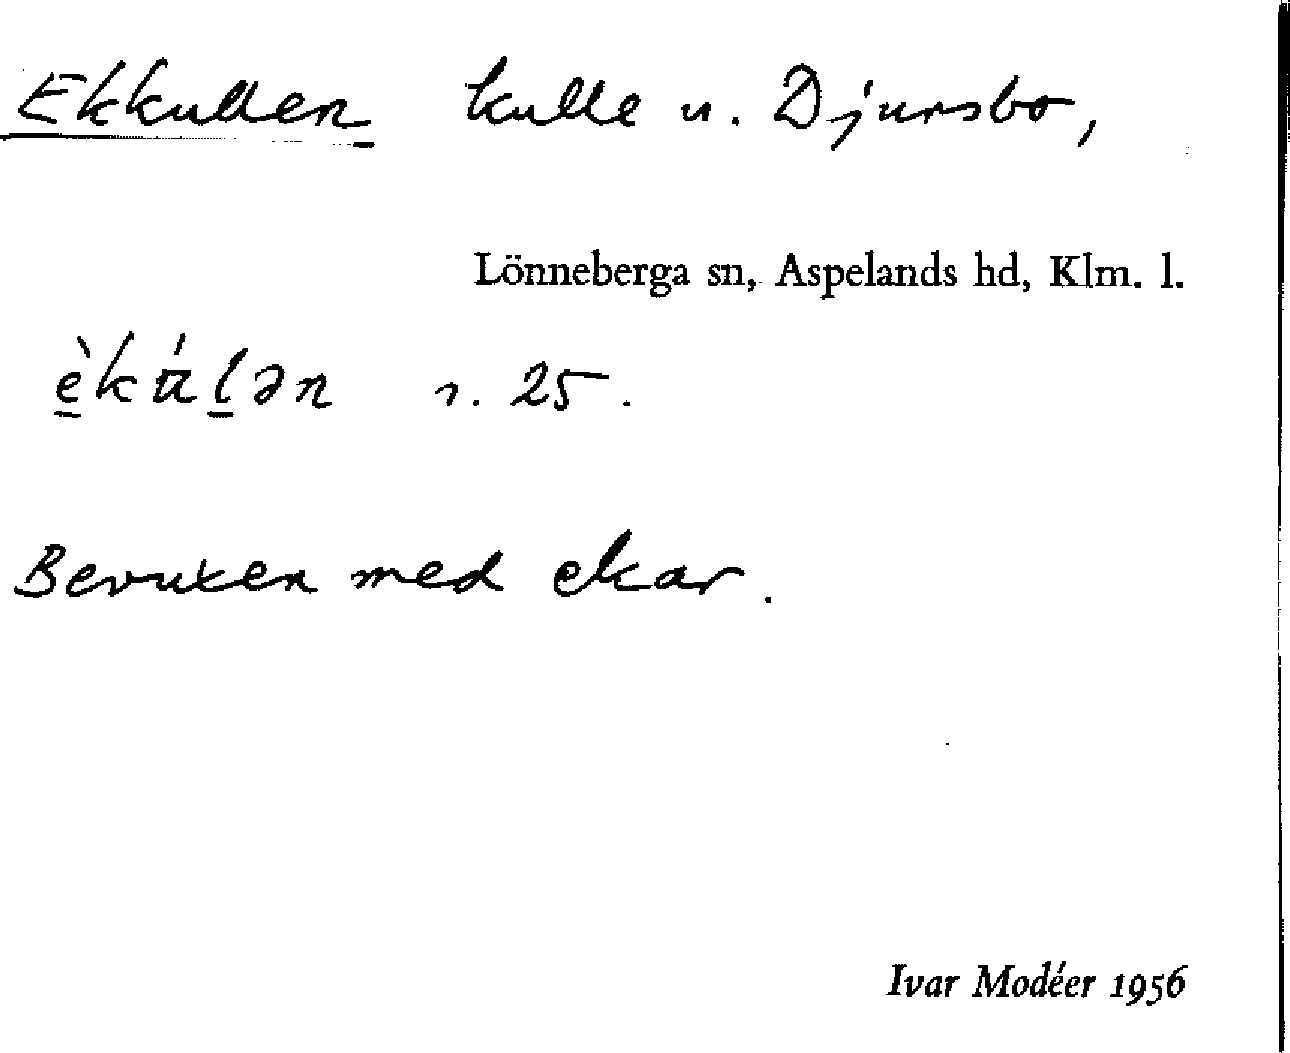 Ekkullen kulle u. Djursbo,
Lönneberga sn, Aspelands hd, Klm. l.
èkúlən s. 25.
Bevuxen med ekar.
Ivar Modéer 1956